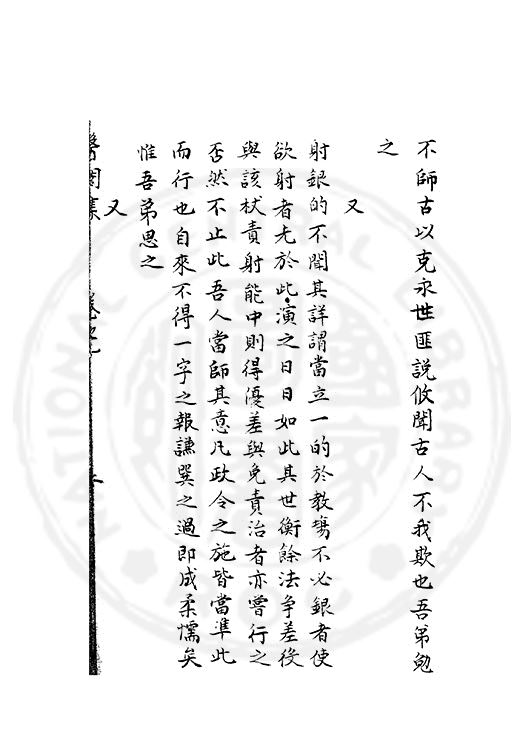 不師古以克永世匪說攸聞古人不我欺也吾弟勉
之
又
射銀的不聞其詳謂當立一的於教塲不必銀者使
欲射者先於此演之日日如此其世衡餘法争差役
與該杖責射能中則得優差與免責治者亦嘗行之
否然不止此吾人當師其意凡政令之施皆當準此
而行也自來不得一字之報謙巽之過即成柔懦矣
惟吾弟思之
又
NATIONAL CENTRAL LIBRARY